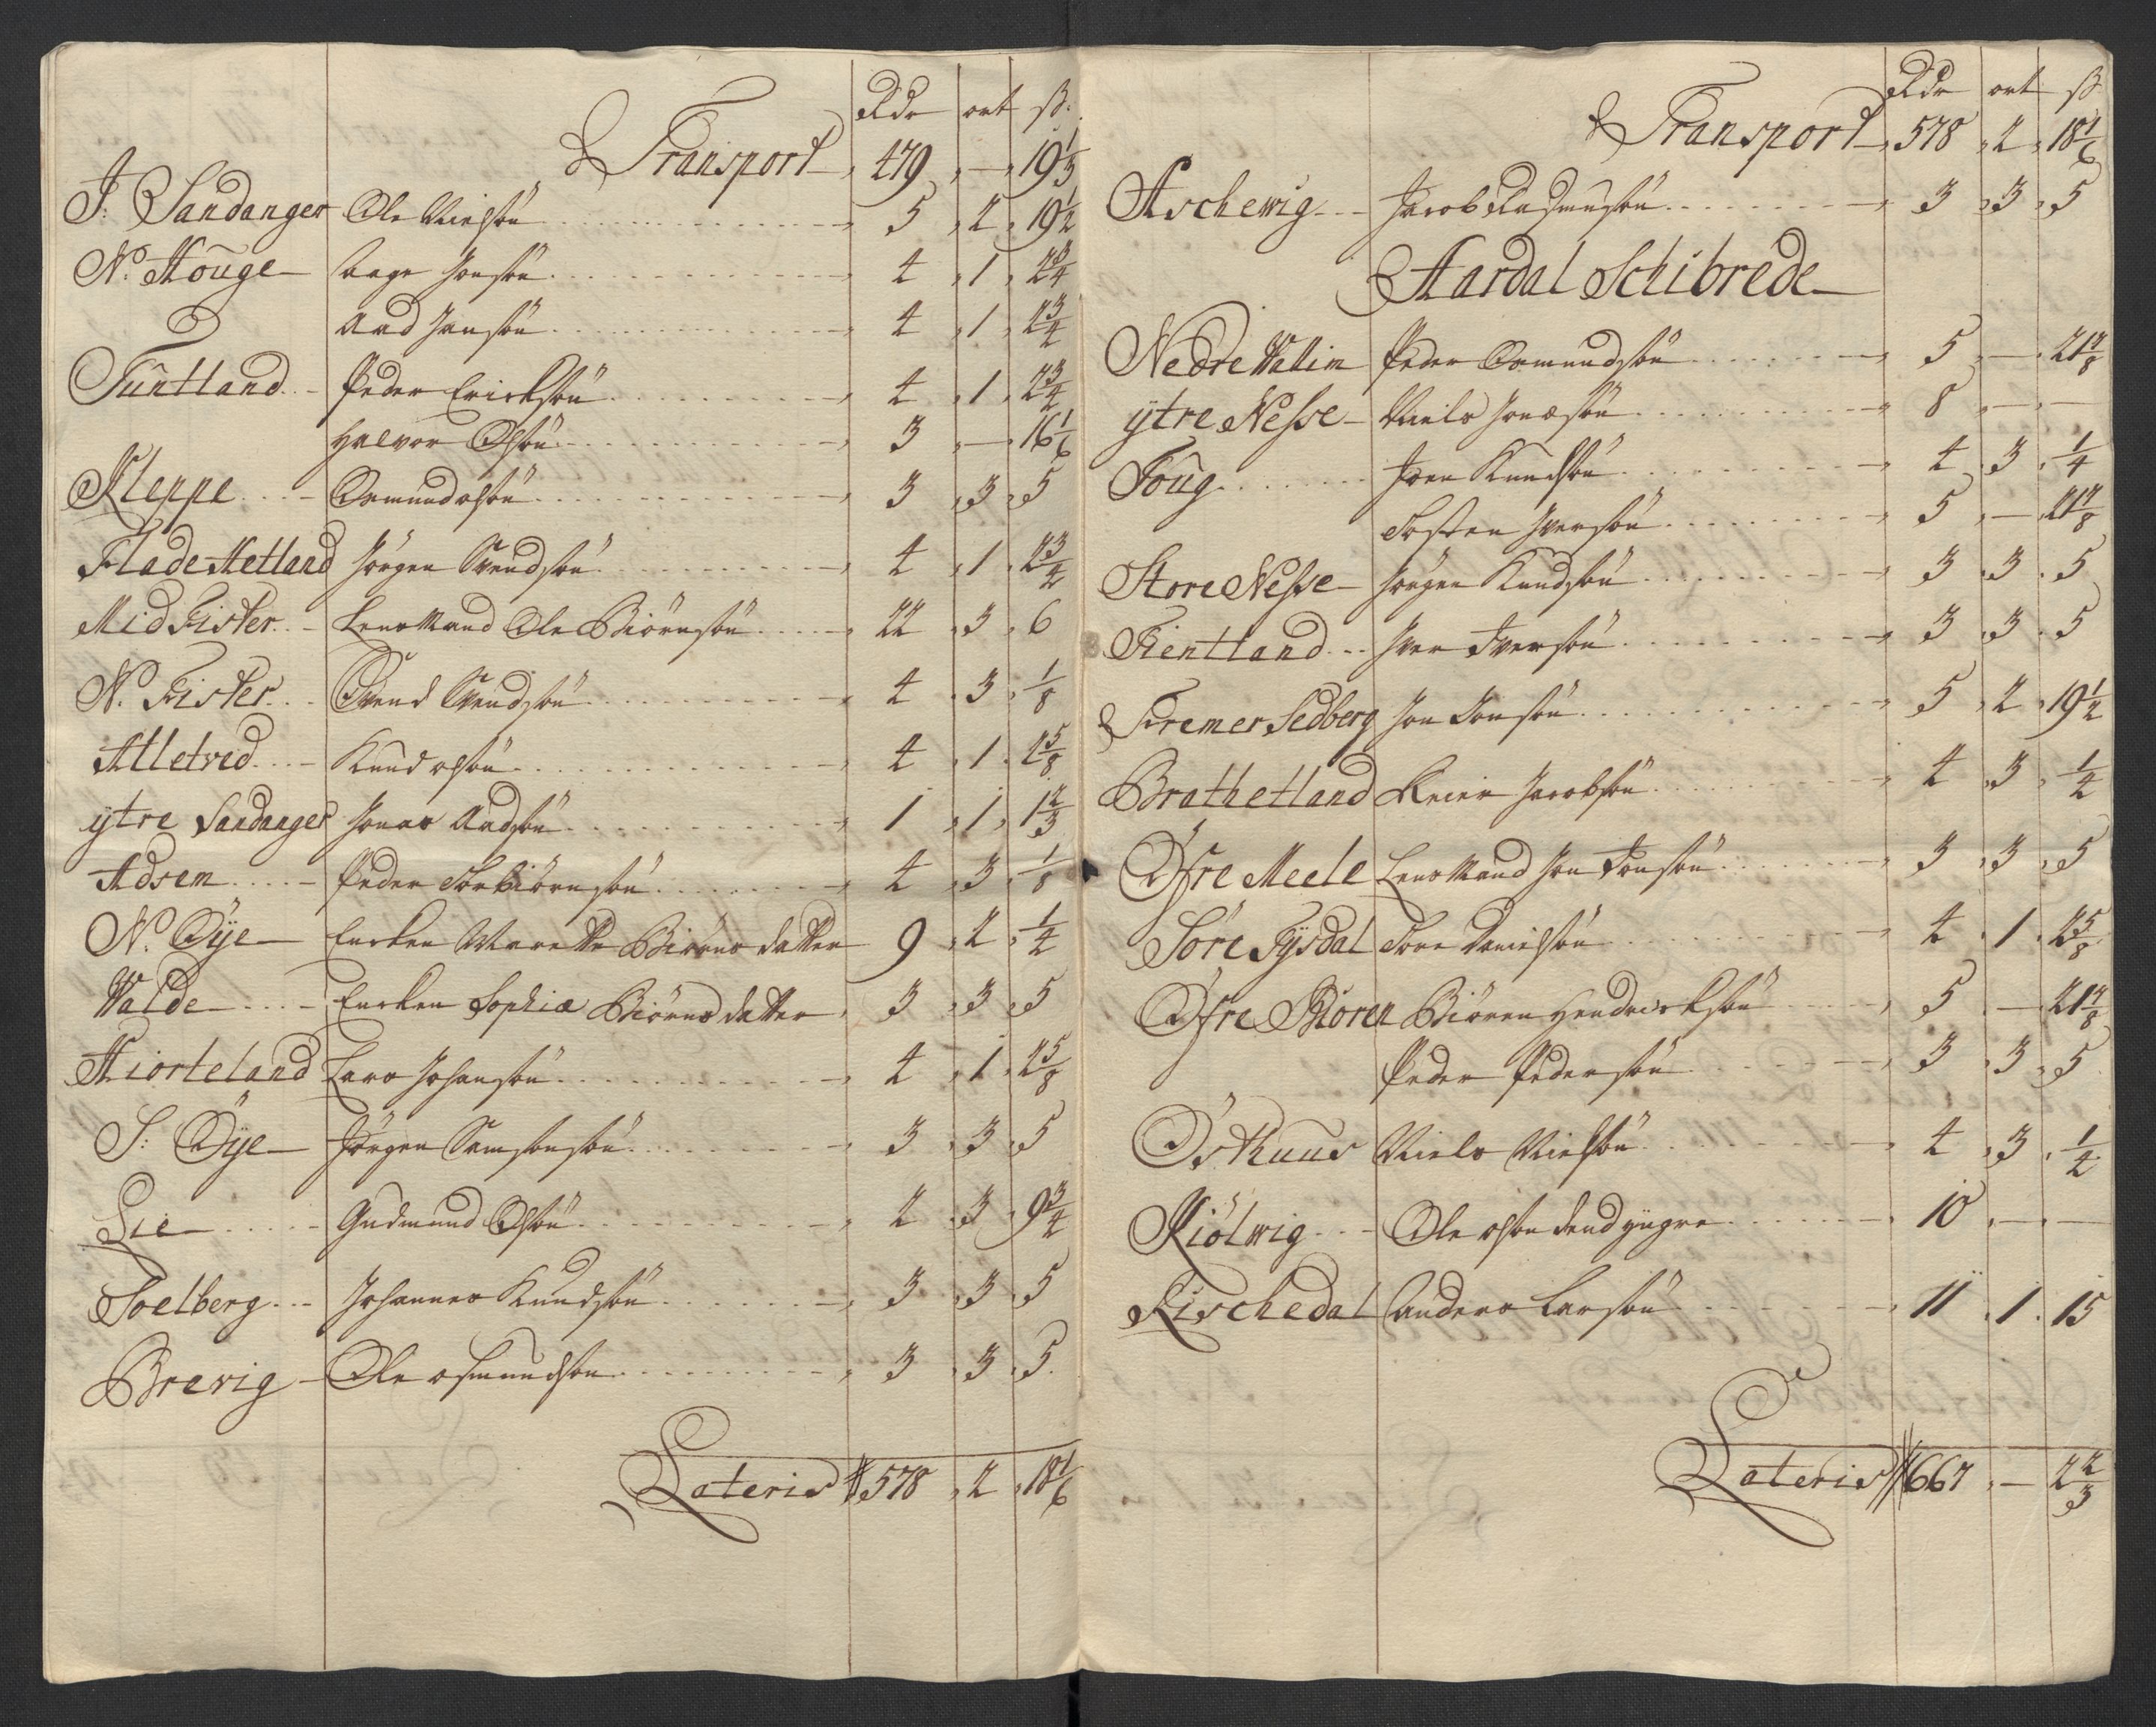 Rdr ort ß.
Transport 479 — 19 1/3
J: Sandanger Ole Nielsön 5 2 19 1/2
N. Houge Aage Jonsön 4 1 2 3/4
Aad Jansön 4 1 2 3/4
Tuntland Peder Ericksön 4 1 2 3/4
Halvor Olsön 3 — 16 1/6
Kleppe Osmundsön 3 3 5
Flade Hetland Jörgen Svendsön 4 1 2 3/4
Mid Fister Lensmand Ole Biörnsön 22 3 6
N. Fister Svend Svendsön 4 3 1/8
Alletved Knud olsön 4 1 2 5/8
ÿtre Sandanger Jonas Aadsön 1 1 1 2/3
Adsem Peder Torbiörnsön 4 3 1/8
N. Öÿe Encken Marette Biörns datter 9 2 1/2
Valde Encken Sophia Biörns datter 3 3 5
Hiorteland Lars Johansön 4 1 2 5/8
S: Öÿe Jörgen Samsonsön 3 3 5
Lie Gudmund Olsön 2 3 9 3/4
Soelberg Johannes Knudsön 3 3 5
Brevig Ole osmundsön 3 3 5
Lateris 578 2 18 1/6
Rdr ort ß
Transport 578 2 18 1/6
Aschevig Jacob Rasmusön 3 3 5
Aardal Schibrede
Nedre Vatim Peder Osmundsön 5 — 21 7/8
ÿtre Nesse Niels Jonæsön 8 — —
Foug Joen Knudsön 4 3 1/4
Tosten Iversön 5 — 21 7/8
Store Nesse Jörgen Knudsön 3 3 5
Tientland Iver Iversön 3 3 5
Fremer Sedberg Jon Jonsön 5 2 19 1/2
Brathetland Reier Jacobsön 4 3 1/2
Öfre Meele Lensmand Jon Jonsön 3 3 5
Söre Tÿsdal Tore Danielsön 4 1 2 5/8
Öfre Bioren Biören Hendricksön 5 — 21 7/8
Peder Pedersön 3 3 5
Östhuus Niels Nielsön 4 3 1/2
Kiölvig Ole olsön dend ÿngre 10 — —
Rischedal Anders Larsön 11 1 15
Lateris 667 — 2 2/3